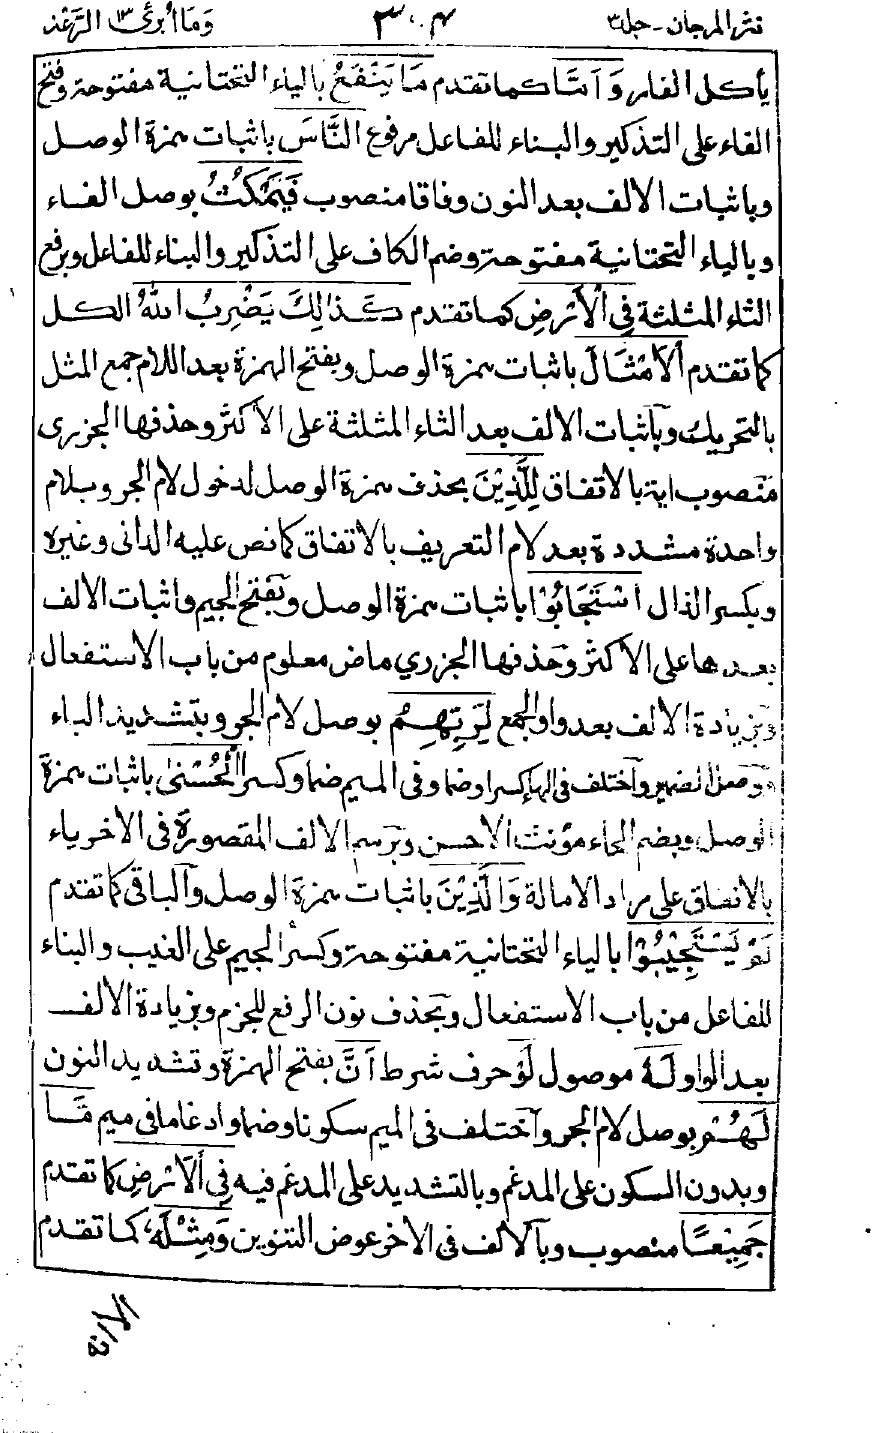 نثر المرجان - جلد٣ ٣٠٤ وَمَا أُبَرِّئُ ١٣ الرَّعْد
يأكل الفار وَاَمَّا كما تقدم مَا يَنْفَعُ بالياء التحتانية مفتوحة وفتح
الفاء على التذكير والبناء للفاعل مرفوع النَّاسَ باثبات همزة الوصل
وباثبات الالف بعد النون وفاقا منصوب فَيَمْكُثُ بوصل الفاء
وبالياء التحتانية مفتوحة وضم الكاف على التذكير والبناء للفاعل وبرفع
الثاء المثلثة فِي الْاَرْضِ كما تقدم كَذٰلِكَ يَضْرِبُ اللهُ الكل
كما تقدم اَلْاَمْثَالَ باثبات همزة الوصل وبفتح الهمزة بعد اللام جمع المثل
بالتحريك وباثبات الالف بعد الثاء المثلثة على الاكثر وحذفها الجزرى
منصوب اية بالاتفاق لِلَّذِيْنَ بحذف همزة الوصل لدخول لام الجر وبلام
واحدة مشددة بعد لام التعريف بالاتفاق كما نص عليه الدانى وغيره
وبكسر الذال اسْتَجَابُوْا باثبات همزة الوصل وبفتح الجيم واثبات الالف
بعدها على الاكثر وحذفها الجزري ماض معلوم من باب الاستفعال
وبزيادة الالف بعد واو الجمع لِرَبِّهِمُ بوصل لام الجر وبتشديد الباء
ووصل الضمير واختلف فى الهاء كسرا وضما وفى الميم ضما وكسرا الْحُسْنٰى باثبات همزة
الوصل وبضم الحاء مؤنث الاحسن وبرسم الالف المقصورة فى الاخر ياء
بالاتفاق على مراد الامالة وَالَّذِيْنَ باثبات همزة الوصل والباقى كما تقدم
لَمْ يَسْتَجِيْبُوْا بالياء التحتانية مفتوحة وكسر الجيم على الغيب والبناء
للفاعل من باب الاستفعال وبحذف نون الرفع للجزم وبزيادة الالف
بعد الواو لَهٗ موصول لَوْ حرف شرط اَنَّ بفتح الهمزة وتشديد النون
لَهُمْ بوصل لام الجر واختلف فى الميم سكونا وضما وادغاما فى ميم مَّا
وبدون السكون على المدغم وبالتشديد على المدغم فيه فِي الْاَرْضِ كما تقدم
جَمِيْعًا منصوب وبالالف فى الاخر عوض التنوين وَمِثْلَهٗ كما تقدم